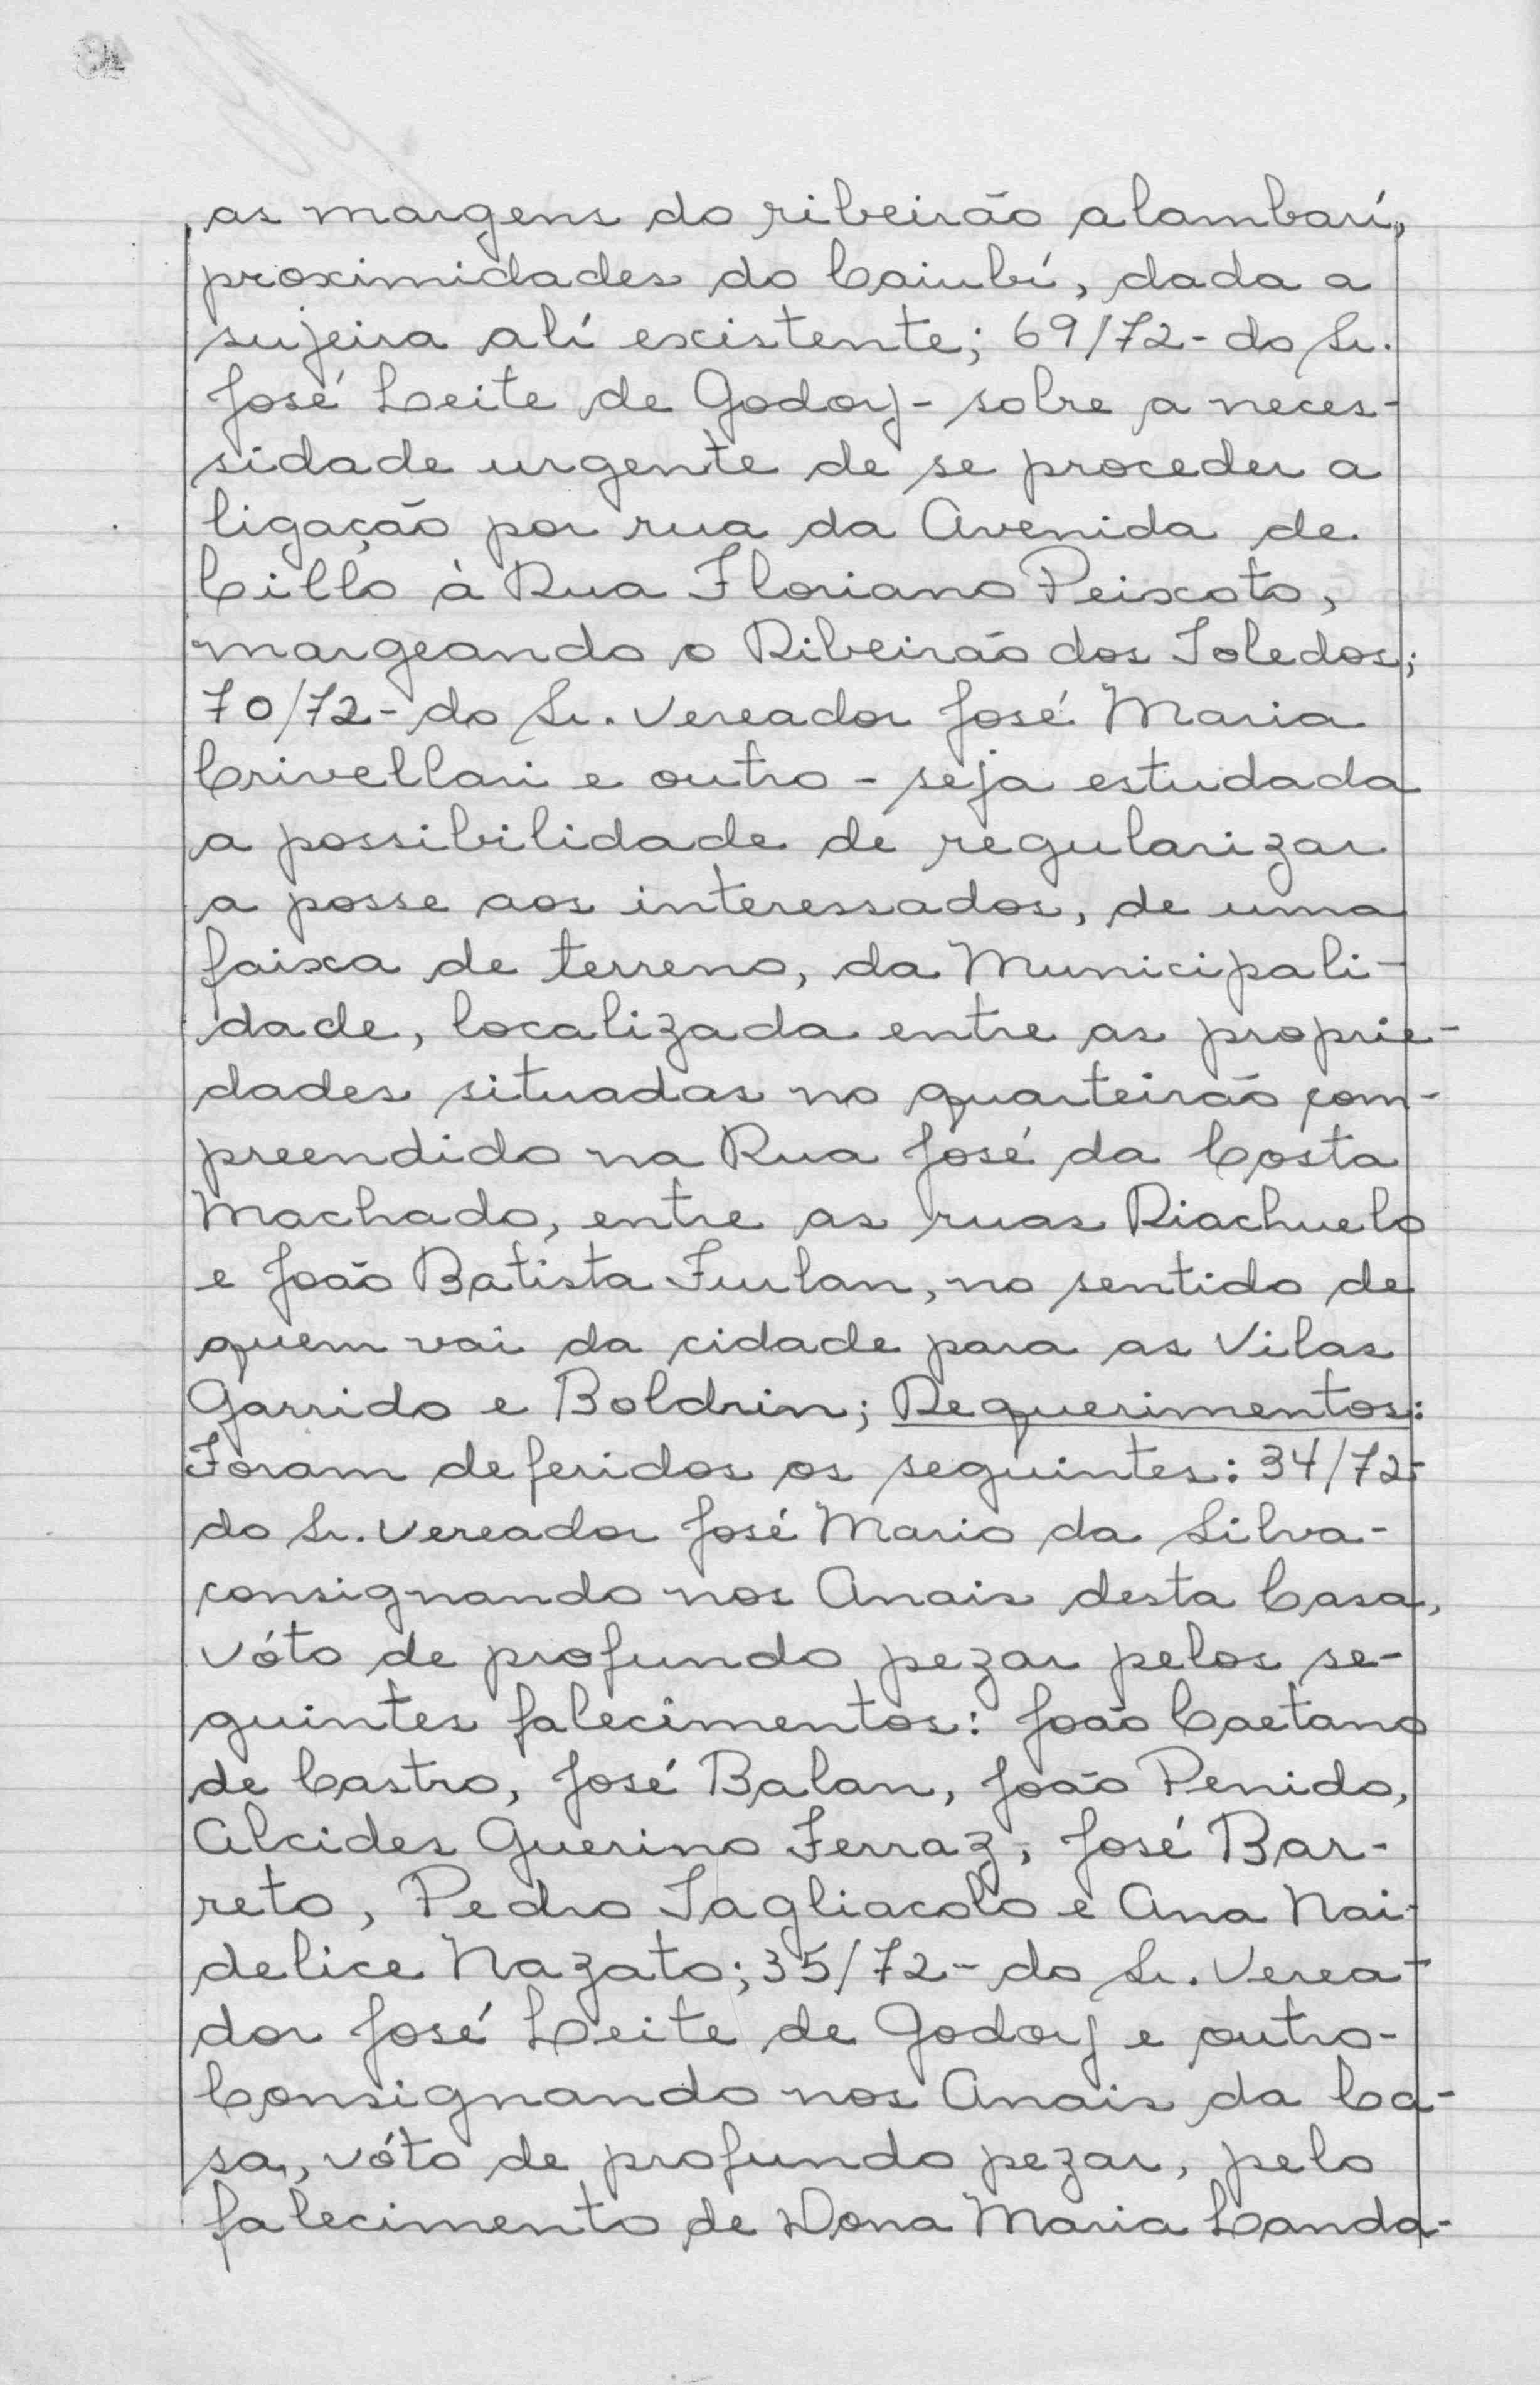 as margens do ribeirão alambarí,
proximidades do Caiubí, dada a
sujeira alí existente; 69/72- do Sr.
José Leite de Godoy - sobre a neces-
sidade urgente de se proceder a
ligação por rua da Avenida de
Cillo à Rua Floriano Peixoto,
margeando o Ribeirão dos Toledos;
70/72- do Sr. Vereador José Maria
Crivellari e outro - seja estudada
a possibilidade de regularizar
a posse aos interessados, de uma
faixa de terreno, da Municipali-
dade, localizada entre as proprie-
dades situadas no quarteirão com-
preendido na Rua José da Costa
Machado, entre as ruas Riachuelo
e João Batista Furlan, no sentido de
quem vai da cidade para as Vilas
Garrido e Boldrin; Requerimentos:
Foram deferidos os seguintes: 34/72-
do Sr. Vereador José Mario da Silva-
consignando nos Anais desta Casa,
vóto de profundo pezar pelos se-
guintes falecimentos: João Caetano
de Castro, José Balan, João Penido,
Alcides Guerino Ferraz, José Bar-
reto, Pedro Tagliacolo e Ana Nai-
delice Nazato; 35/72- do Sr. Verea-
dor José Leite de Godoy e outro-
Consignando nos Anais da Ca-
sa, vóto de profundo pezar, pelo
falecimento de Dona Maria Landa-